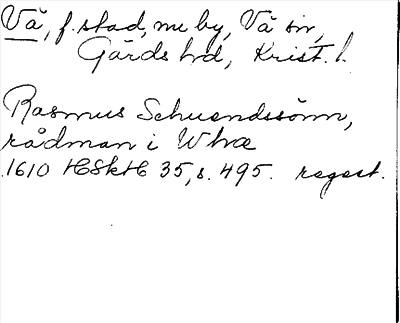 Vä, f. stad, nu by, Vä sn,
Gärds hd, Krist. l.
Rasmus Schuendssönn,
rådman i Whæ
1610 HSkH 35, s. 495. regest.